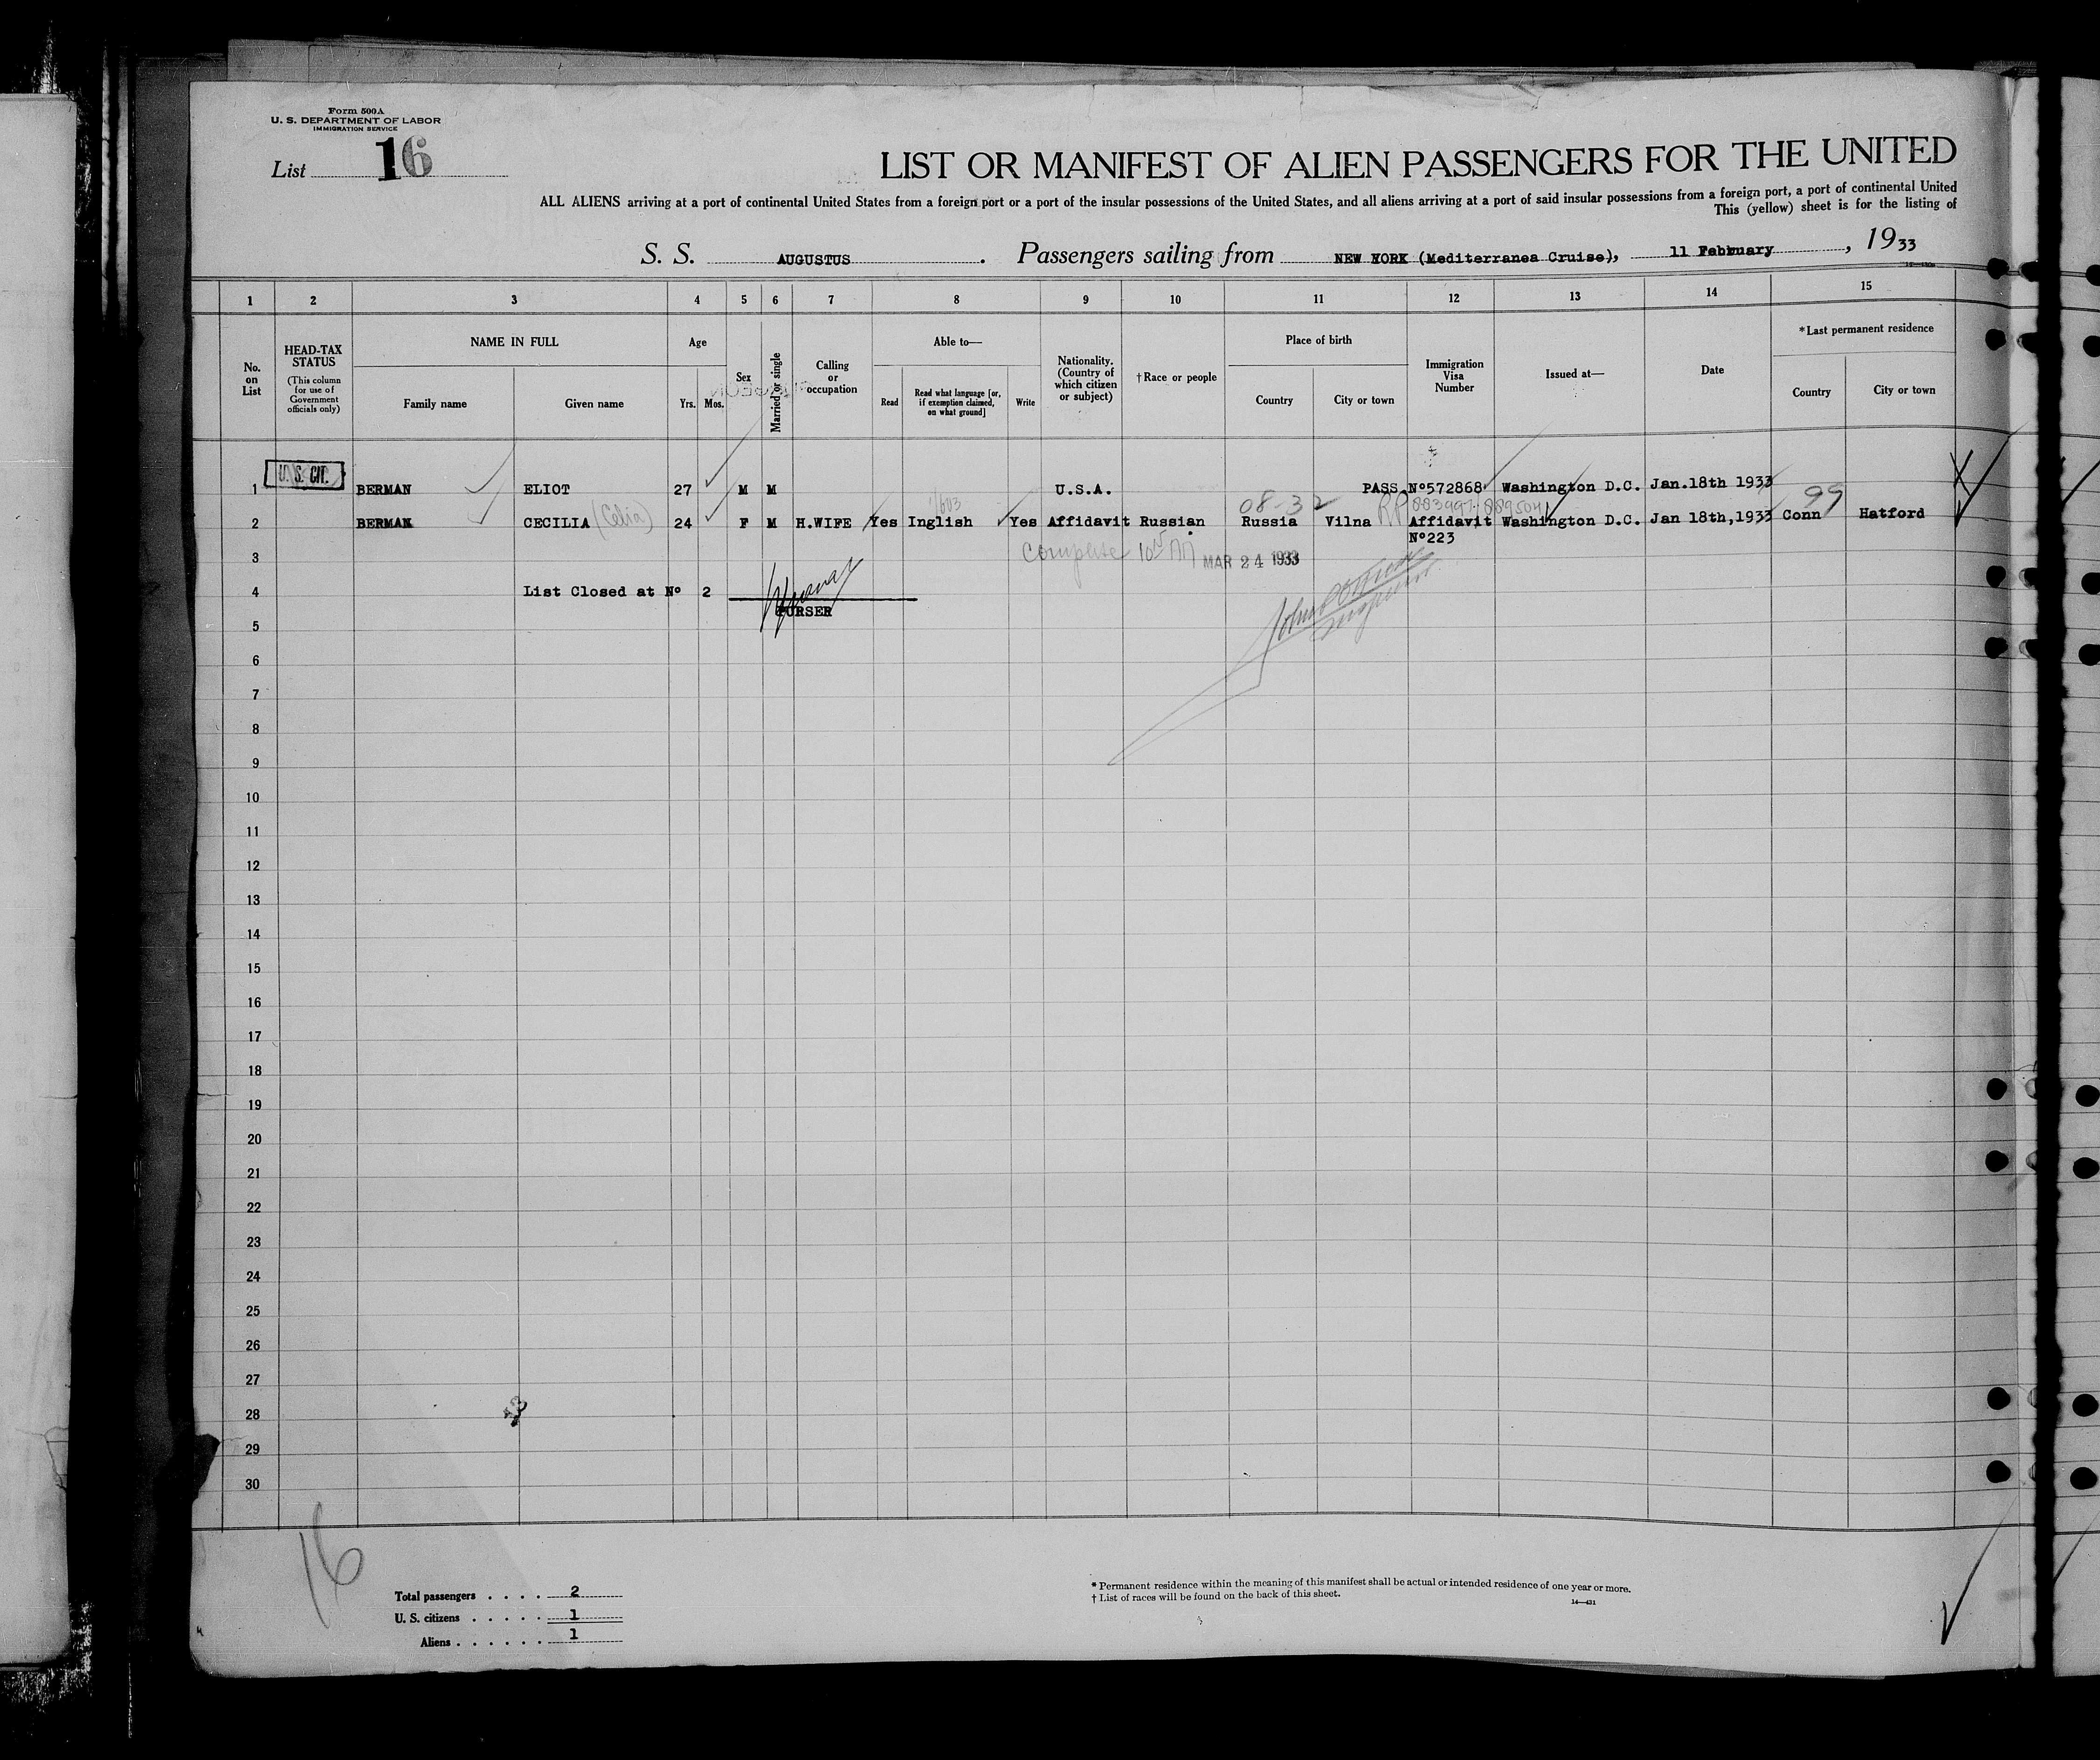 Form 500A
U. S. DEPARTMENT OF LABOR
IMMIGRATION SERVICE
List 16
LIST OR MANIFEST OF ALIEN PASSENGERS FOR THE UNITED
ALL ALIENS arriving at a port of continental United States from a foreign port or a port of the insular possessions of the United States, and all aliens arriving at a port of said insular possessions from a foreign port, a port of continental United
This (yellow) sheet is for the listing of
S. S. AUGUSTUS. Passengers sailing from NEW YORK (Mediterranea Cruise), 11 February, 1933
1 2 3 4 5 6 7 8 9 10 11 12 13 14 15
No. on List
HEAD-TAX STATUS
(This column for use of Government officials only)
NAME IN FULL
Family name
Given name
Age
Yrs. Mos.
Sex
Married or single
Calling or occupation
Able to—
Read
Read what language [or, if exemption claimed, on what ground]
Write
Nationality. (Country of which citizen or subject)
†Race or people
Place of birth
Country
City or town
Immigration Visa Number
Issued at—
Date
*Last permanent residence
Country
City or town
1 U. S. CIT. BERMAN ELIOT 27 M M U.S.A. PASS Nº572868 Washington D.C. Jan.18th 1933
08-32 99
2 BERMAN CECILIA (Celia) 24 F M H.WIFE Yes Inglish Yes Affidavit Russian Russia Vilna Affidavit Washington D.C. Jan 18th,1933 Conn Hatford
Nº223
3 Complete MAR 24 1933
4 List Closed at Nº 2
PURSER
5
6
7
8
9
10
11
12
13
14
15
16
17
18
19
20
21
22
23
24
25
26
27
28
29
30
16
Total passengers . . . . 2
U. S. citizens . . . . . 1
Aliens . . . . . . 1
* Permanent residence within the meaning of this manifest shall be actual or intended residence of one year or more.
† List of races will be found on the back of this sheet.
14—431